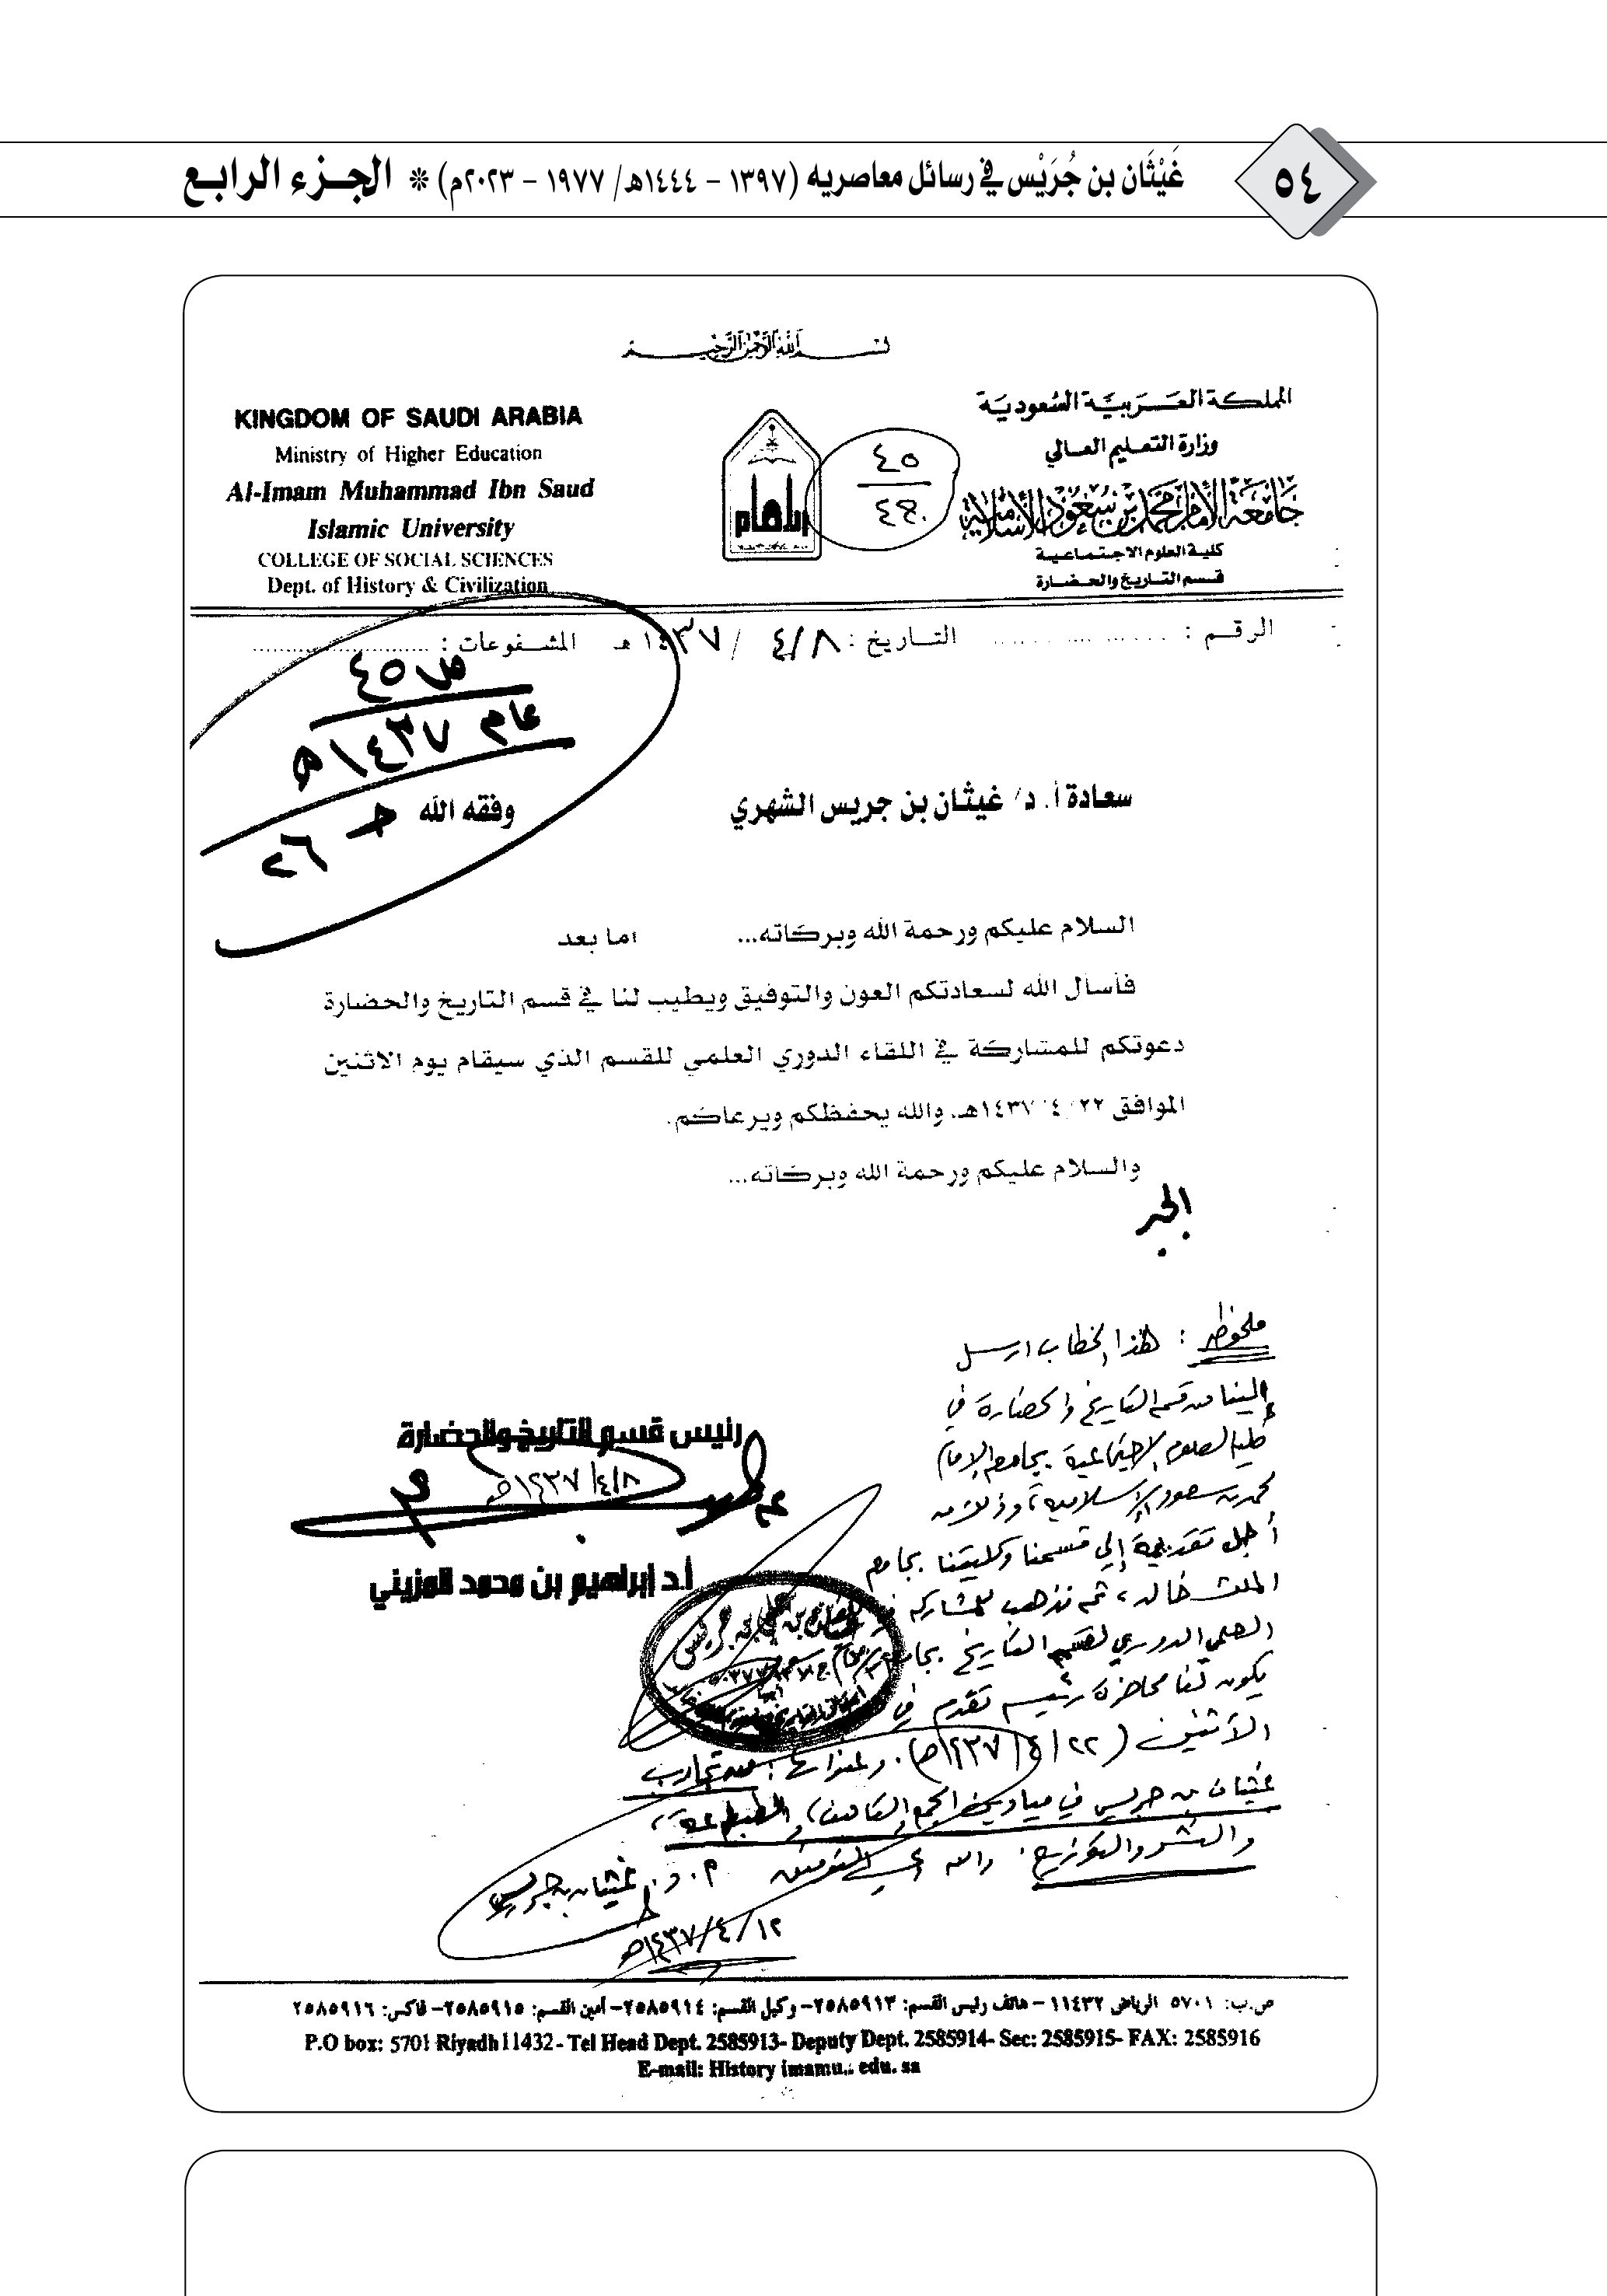 ٥٤
غَيْثَان بن جُرَيْس في رسائل معاصريه (١٣٩٧ – ١٤٤٤هـ/ ١٩٧٧ – ٢٠٢٣م) * الجزء الرابع
بسم الله الرحمن الرحيم
المملكة العربية السعودية
وزارة التعليم العالي
جامعة الإمام محمد بن سعود الإسلامية
كلية العلوم الاجتماعية
قسم التاريخ والحضارة
٤٥
KINGDOM OF SAUDI ARABIA
Ministry of Higher Education
Al-Imam Muhammad Ibn Saud
Islamic University
COLLEGE OF SOCIAL SCIENCES
Dept. of History & Civilization
الرقم : التاريخ : ٤/٨ / ١٤٣٧ هـ المشفوعات :
ص ٤٥
عام ١٤٣٧هـ
حـ ٢٦
سعادة أ. د/ غيثان بن جريس الشهري وفقه الله
السلام عليكم ورحمة الله وبركاته... اما بعد
فأسأل الله لسعادتكم العون والتوفيق ويطيب لنا في قسم التاريخ والحضارة
دعوتكم للمشاركة في اللقاء الدوري العلمي للقسم الذي سيقام يوم الاثنين
الموافق ٢٢/ ٤/ ١٤٣٧هـ. والله يحفظكم ويرعاكم.
والسلام عليكم ورحمة الله وبركاته...
رئيس قسم التاريخ والحضارة
١٤٣٧/٤/٨هـ
أ.د إبراهيم بن محمد المزيني
ملحوظة : هذا الخطاب ارسل
إلينا من قسم التاريخ والحضارة في
كلية العلوم الاجتماعية بجامعة الإمام
محمد بن سعود الإسلامية، وذلك من
أجل تقديمه إلى قسمنا وكليتنا بجامعة
الملك خالد، ثم نذهب للمشاركة في
العلمي الدوري لقسم التاريخ بجامعة
يكون لنا محاضرة رئيسية تقدم في
الأثنين (٢٢/٤/١٤٣٧هـ). وعنوانها: من تجارب
غيثان بن جريس في ميادين الجمع والتأليف، والطباعة،
والنشر والتوزيع. والله ولي التوفيق أ. د. غيثان بن جريس
١٤٣٧/٤/١٢هـ
ص.ب: ٥٧٠١ الرياض ١١٤٣٢ – هاتف رئيس القسم: ٢٥٨٥٩١٣– وكيل القسم: ٢٥٨٥٩١٤– أمين القسم: ٢٥٨٥٩١٥– فاكس: ٢٥٨٥٩١٦
P.O box: 5701 Riyadh 11432 - Tel Head Dept. 2585913- Deputy Dept. 2585914- Sec: 2585915- FAX: 2585916
E-mail: History imamu.. edu. sa